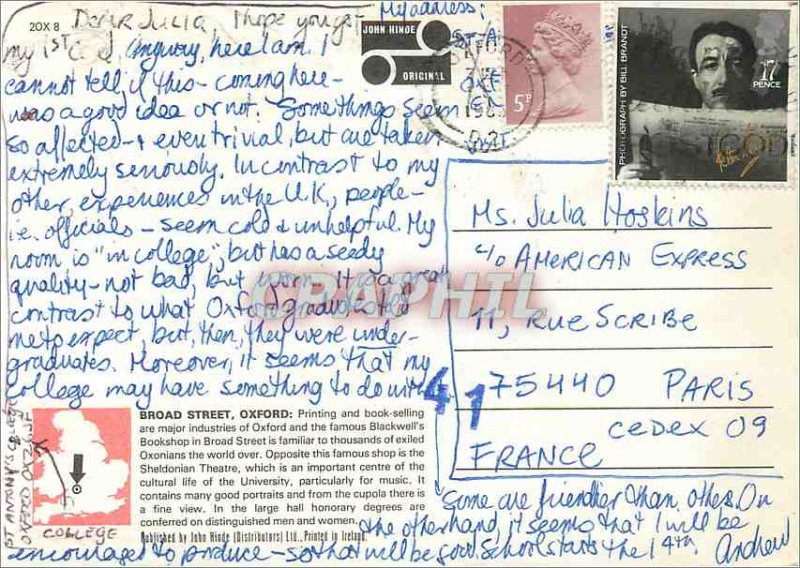 20X8
Dear Julia, I hope you get
my 1st card, anyway, here I am. I
cannot tell if this - coming here -
was a good idea or not. Some things seem
so affected - & even trivial, but are taken
extremely seriously. In contrast to my
other experiences in the U.K., people -
i.e. officials - seem cold & unhelpful. My
room is "in college", but has a seedy
quality - not bad, but worn. It is a great
contrast to what Oxford graduates led
me to expect, but, then, they were under-
graduates. Moreover, it seems that my
college may have something to do with
it
Some are friendlier than others. On
the other hand, it seems that I will be
encouraged to produce - so that will be good. School starts the 14th
Andrew
My address:
ST ANTONY'S COLLEGE
OXFORD OX2 6JF
COLLEGE
JOHN HINDE
ORIGINAL
5P
PHOTOGRAPH BY BILL BRANDT
17
PENCE
Ms. Julia Hoskins
c/o AMERICAN EXPRESS
11, RUE SCRIBE
75440 PARIS
CEDEX 09
FRANCE
41
CPAPHIL
BROAD STREET, OXFORD: Printing and book-selling
are major industries of Oxford and the famous Blackwell's
Bookshop in Broad Street is familiar to thousands of exiled
Oxonians the world over. Opposite this famous shop is the
Sheldonian Theatre, which is an important centre of the
cultural life of the University, particularly for music. It
contains many good portraits and from the cupola there is
a fine view. In the large hall honorary degrees are
conferred on distinguished men and women.
Published by John Hinde (Distributors) Ltd., Printed in Ireland.